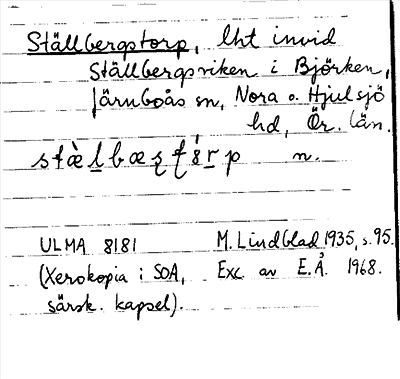 Ställbergstorp, lht invid
Ställbergsviken i Björken,
Järnboås sn, Nora o. Hjulsjö
hd, Ör. län.
n.
ULMA 8181 M. Lindblad 1935, s. 95.
(Xerokopia i SOA, Exc. av E.Å. 1968.
särsk. kapsel).